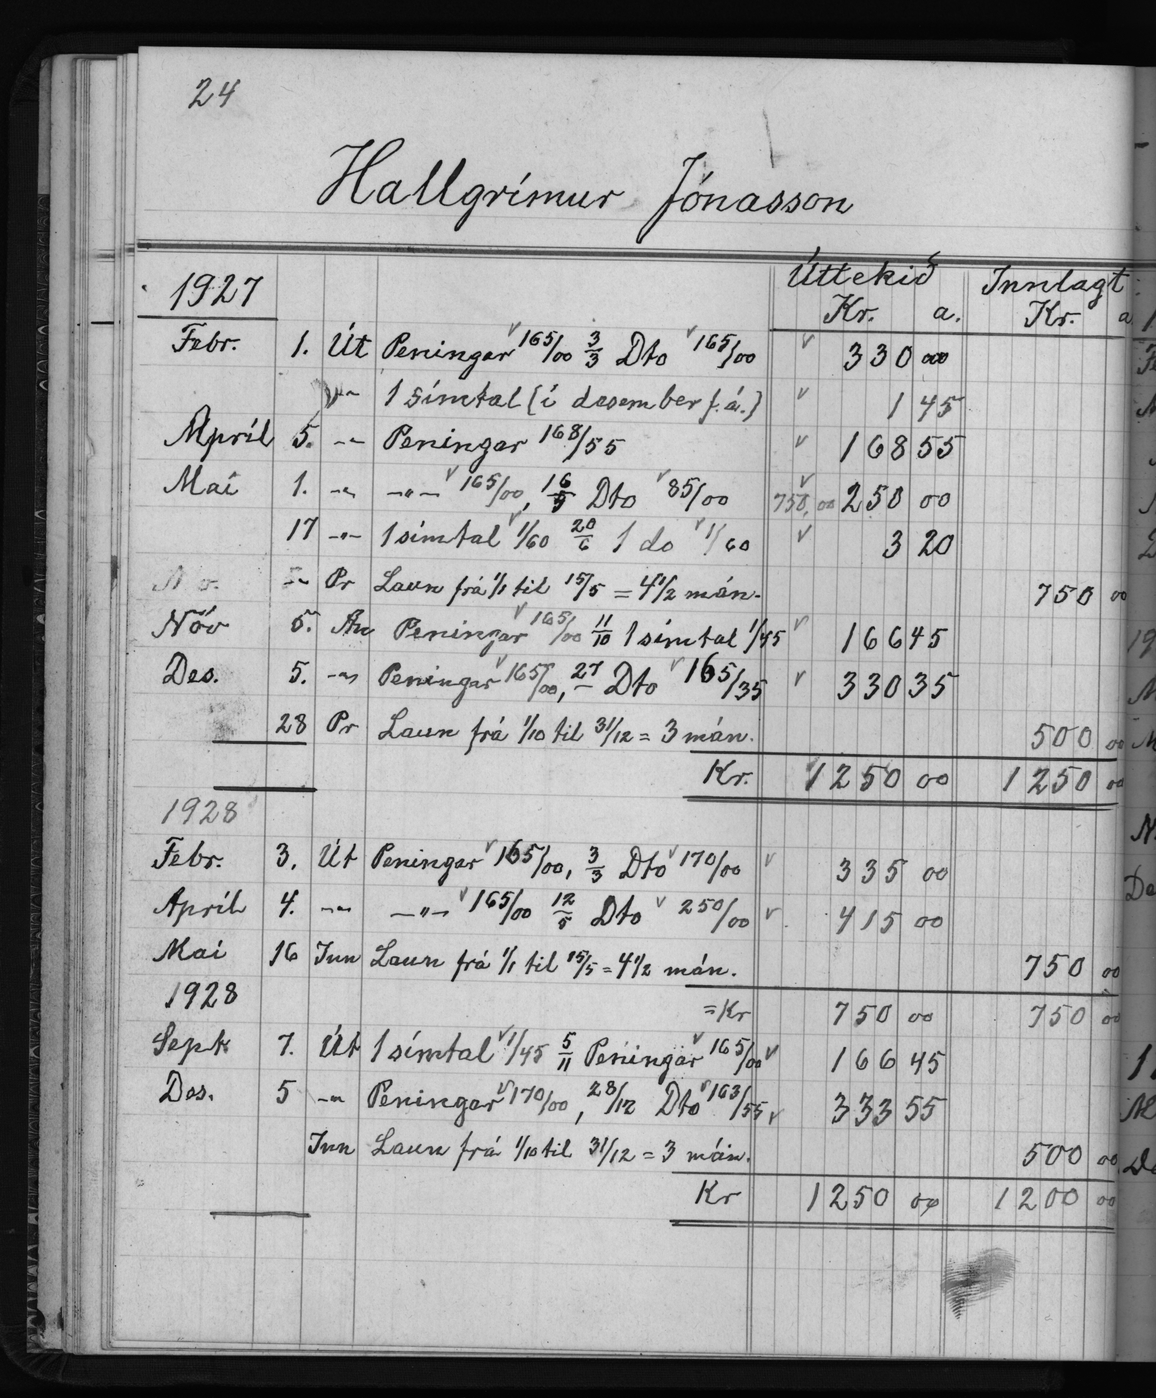 24
Hallgrímur Jónasson
1927 Úttekið Innlagt
Kr. a. Kr. a
Febr. 1. Út Peningar 165/00 3/3 Dto 165/00 330 00
-"- 1 símtal (í desember f.á.) 1 45
Apríl 5. -"- Peningar 168/55 168 55
Maí 1. -"- -"- 165/00, 16/5 Dto 85/00 750,00 250 00
17 -"- 1 símtal 1/60 20/6 1 do 1/60 3 20
-"- Pr Laun frá 1/1 til 15/5 = 4 1/2 mán. 750 00
Nóv 5. Peningar 165/00 11/10 1 símtal 1/45 166 45
Des. 5. -"- Peningar 165/00, 27/- Dto 165/35 330 35
28 Pr Laun frá 1/10 til 31/12 = 3 mán. 500 00
Kr. 1250 00 1250 00
1928
Febr. 3. Út Peningar 165/00, 3/3 Dto 170/00 335 00
Apríl 4. -"- -"- 165/00 12/5 Dto 250/00 415 00
Maí 16 Inn Laun frá 1/1 til 15/5 = 4 1/2 mán. 750 00
1928 = Kr 750 00 750 00
Sept. 7. Út 1 símtal 1/45 5/11 Peningar 165/00 166 45
Des. 5 -"- Peningar 170/00, 28/12 Dto 163/55 333 55
Inn Laun frá 1/10 til 31/12 = 3 mán. 500 00
Kr 1250 00 1200 00